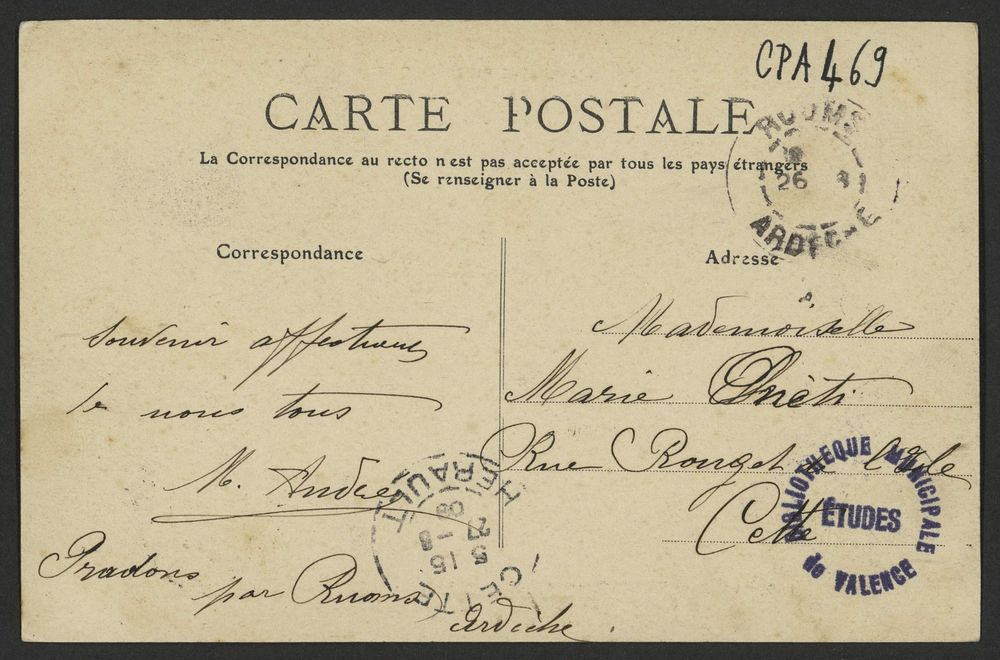 CPA 469
CARTE POSTALE
La Correspondance au recto n'est pas acceptée par tous les pays étrangers
(Se renseigner à la Poste)
RUOMS
26 8
ARDECHE
Correspondance
Adresse
Souvenir affectueux
de nous tous
M. Andre
Pradons
par Ruoms
Ardèche
Mademoiselle
Marie
Rue Rouget de l'Isle
Cette
HERAULT
5 15
27 -8
09
CETTE
BIBLIOTHEQUE MUNICIPALE
ÉTUDES
de VALENCE